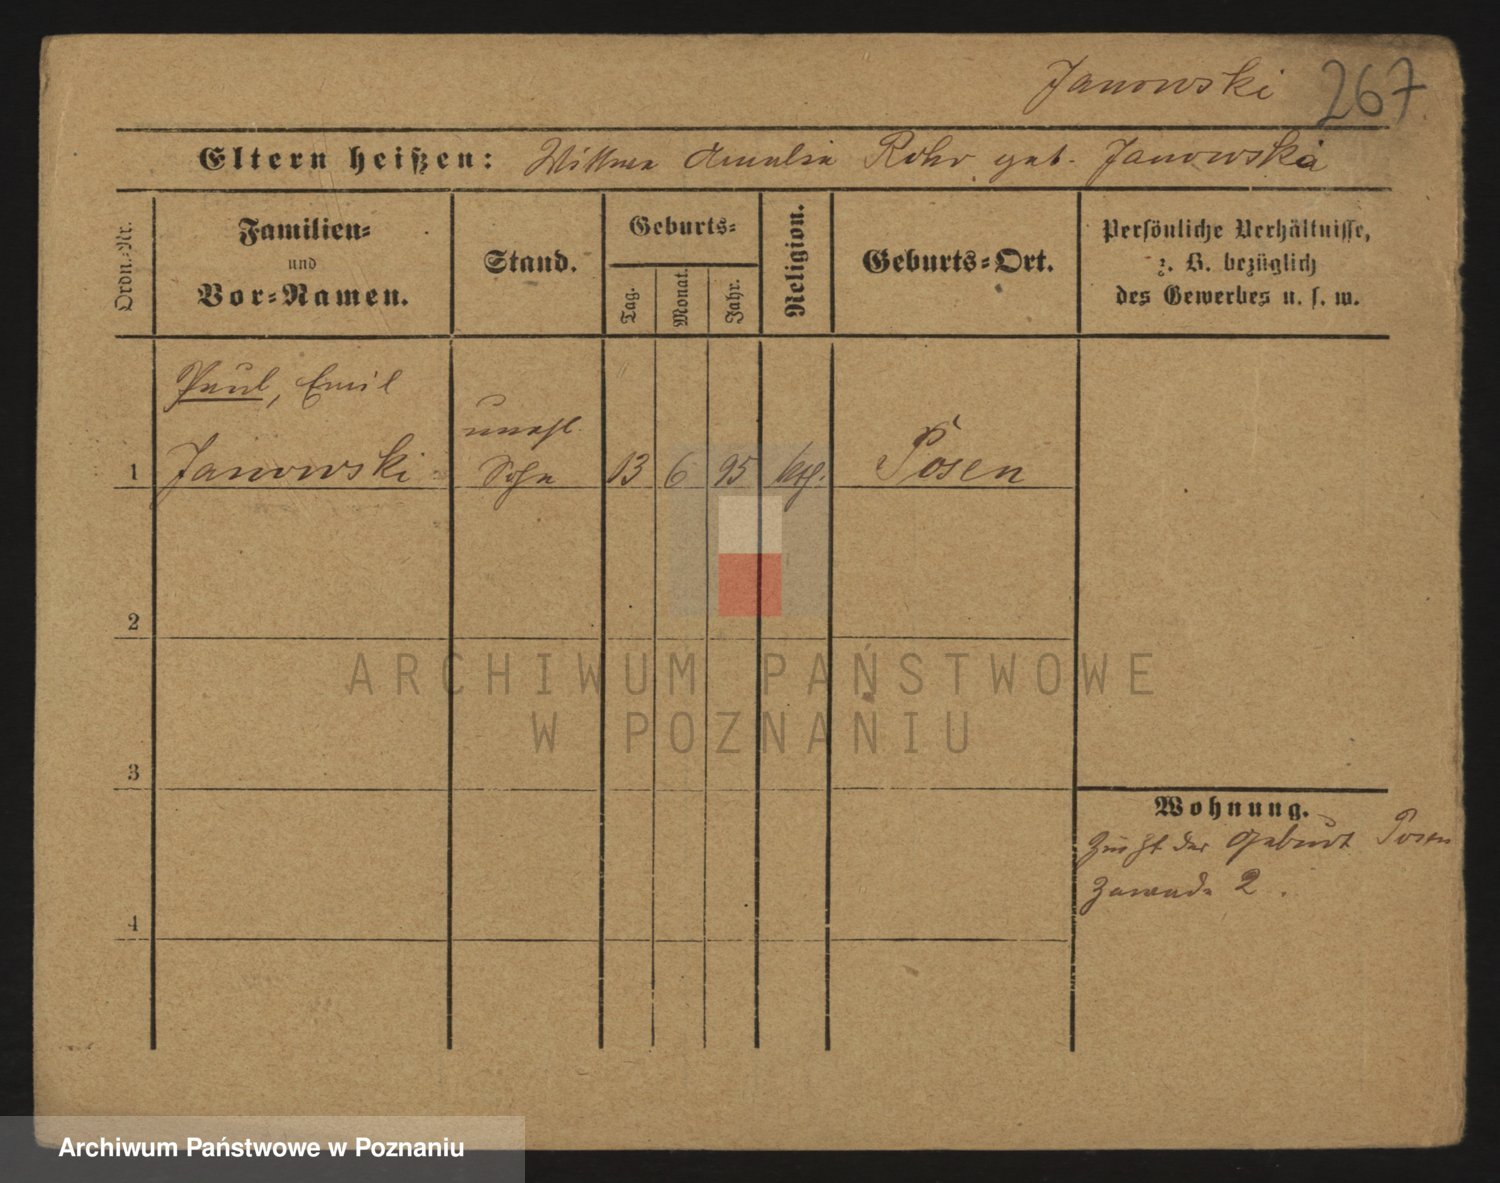 Janowski 267
Eltern heißen: Wittwe Amalie Rohr geb. Janowska
Ordn.-Nr.
Familien-
und
Vor-Namen.
Stand.
Geburts-
Tag.
Monat.
Jahr.
Religion.
Geburts-Ort.
Persönliche Verhältnisse,
z. B. bezüglich
des Gewerbes u. s. w.
Paul, Emil
unehl.
1 Janowski Sohn 13 6 95 kth. Posen
2
3
4
Wohnung.
zur Zt der Geburt Posen
Zawade 2.
ARCHIWUM PAŃSTWOWE
W POZNANIU
Archiwum Państwowe w Poznaniu